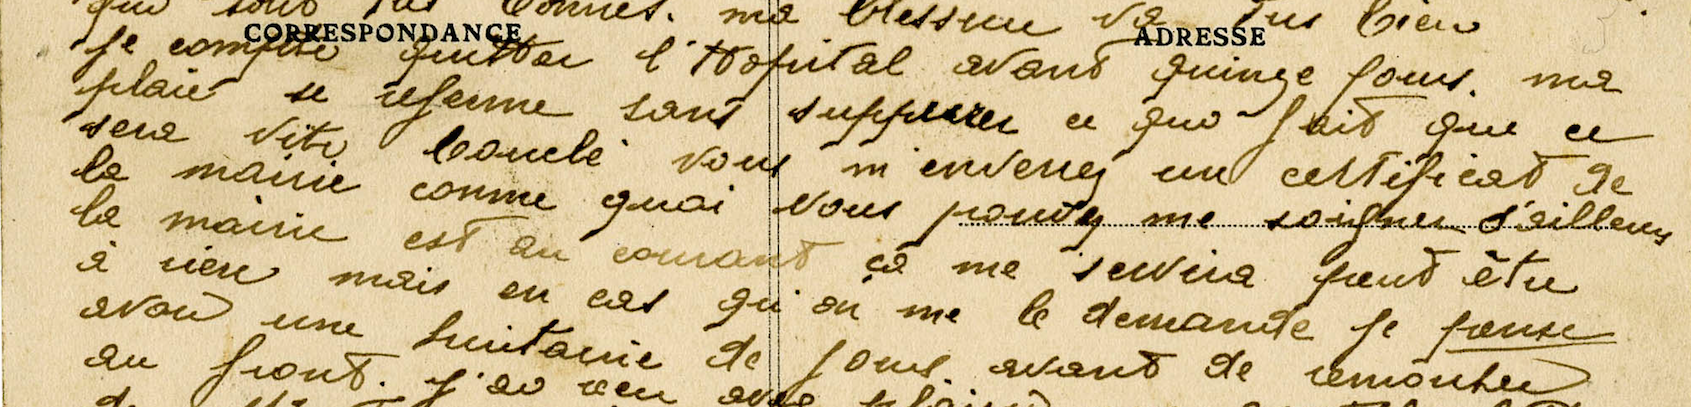 qui sont très bonnes. ma blessure va très bien
CORRESPONDANCE ADRESSE
je compte quitter l'Hopital avant quinze jours. ma
plaie se referme sans suppurer ce qui fait que ce
sera vite bouclé vous m'enverrez un certificat de
la mairie comme quoi vous pouvez me soigner d'ailleurs
la mairie est au courant ça me servira peut être
à rien mais en cas qu'on me le demande je pense
avoir une huitaine de jours avant de remonter
au front. j'ai vu avec plaisir